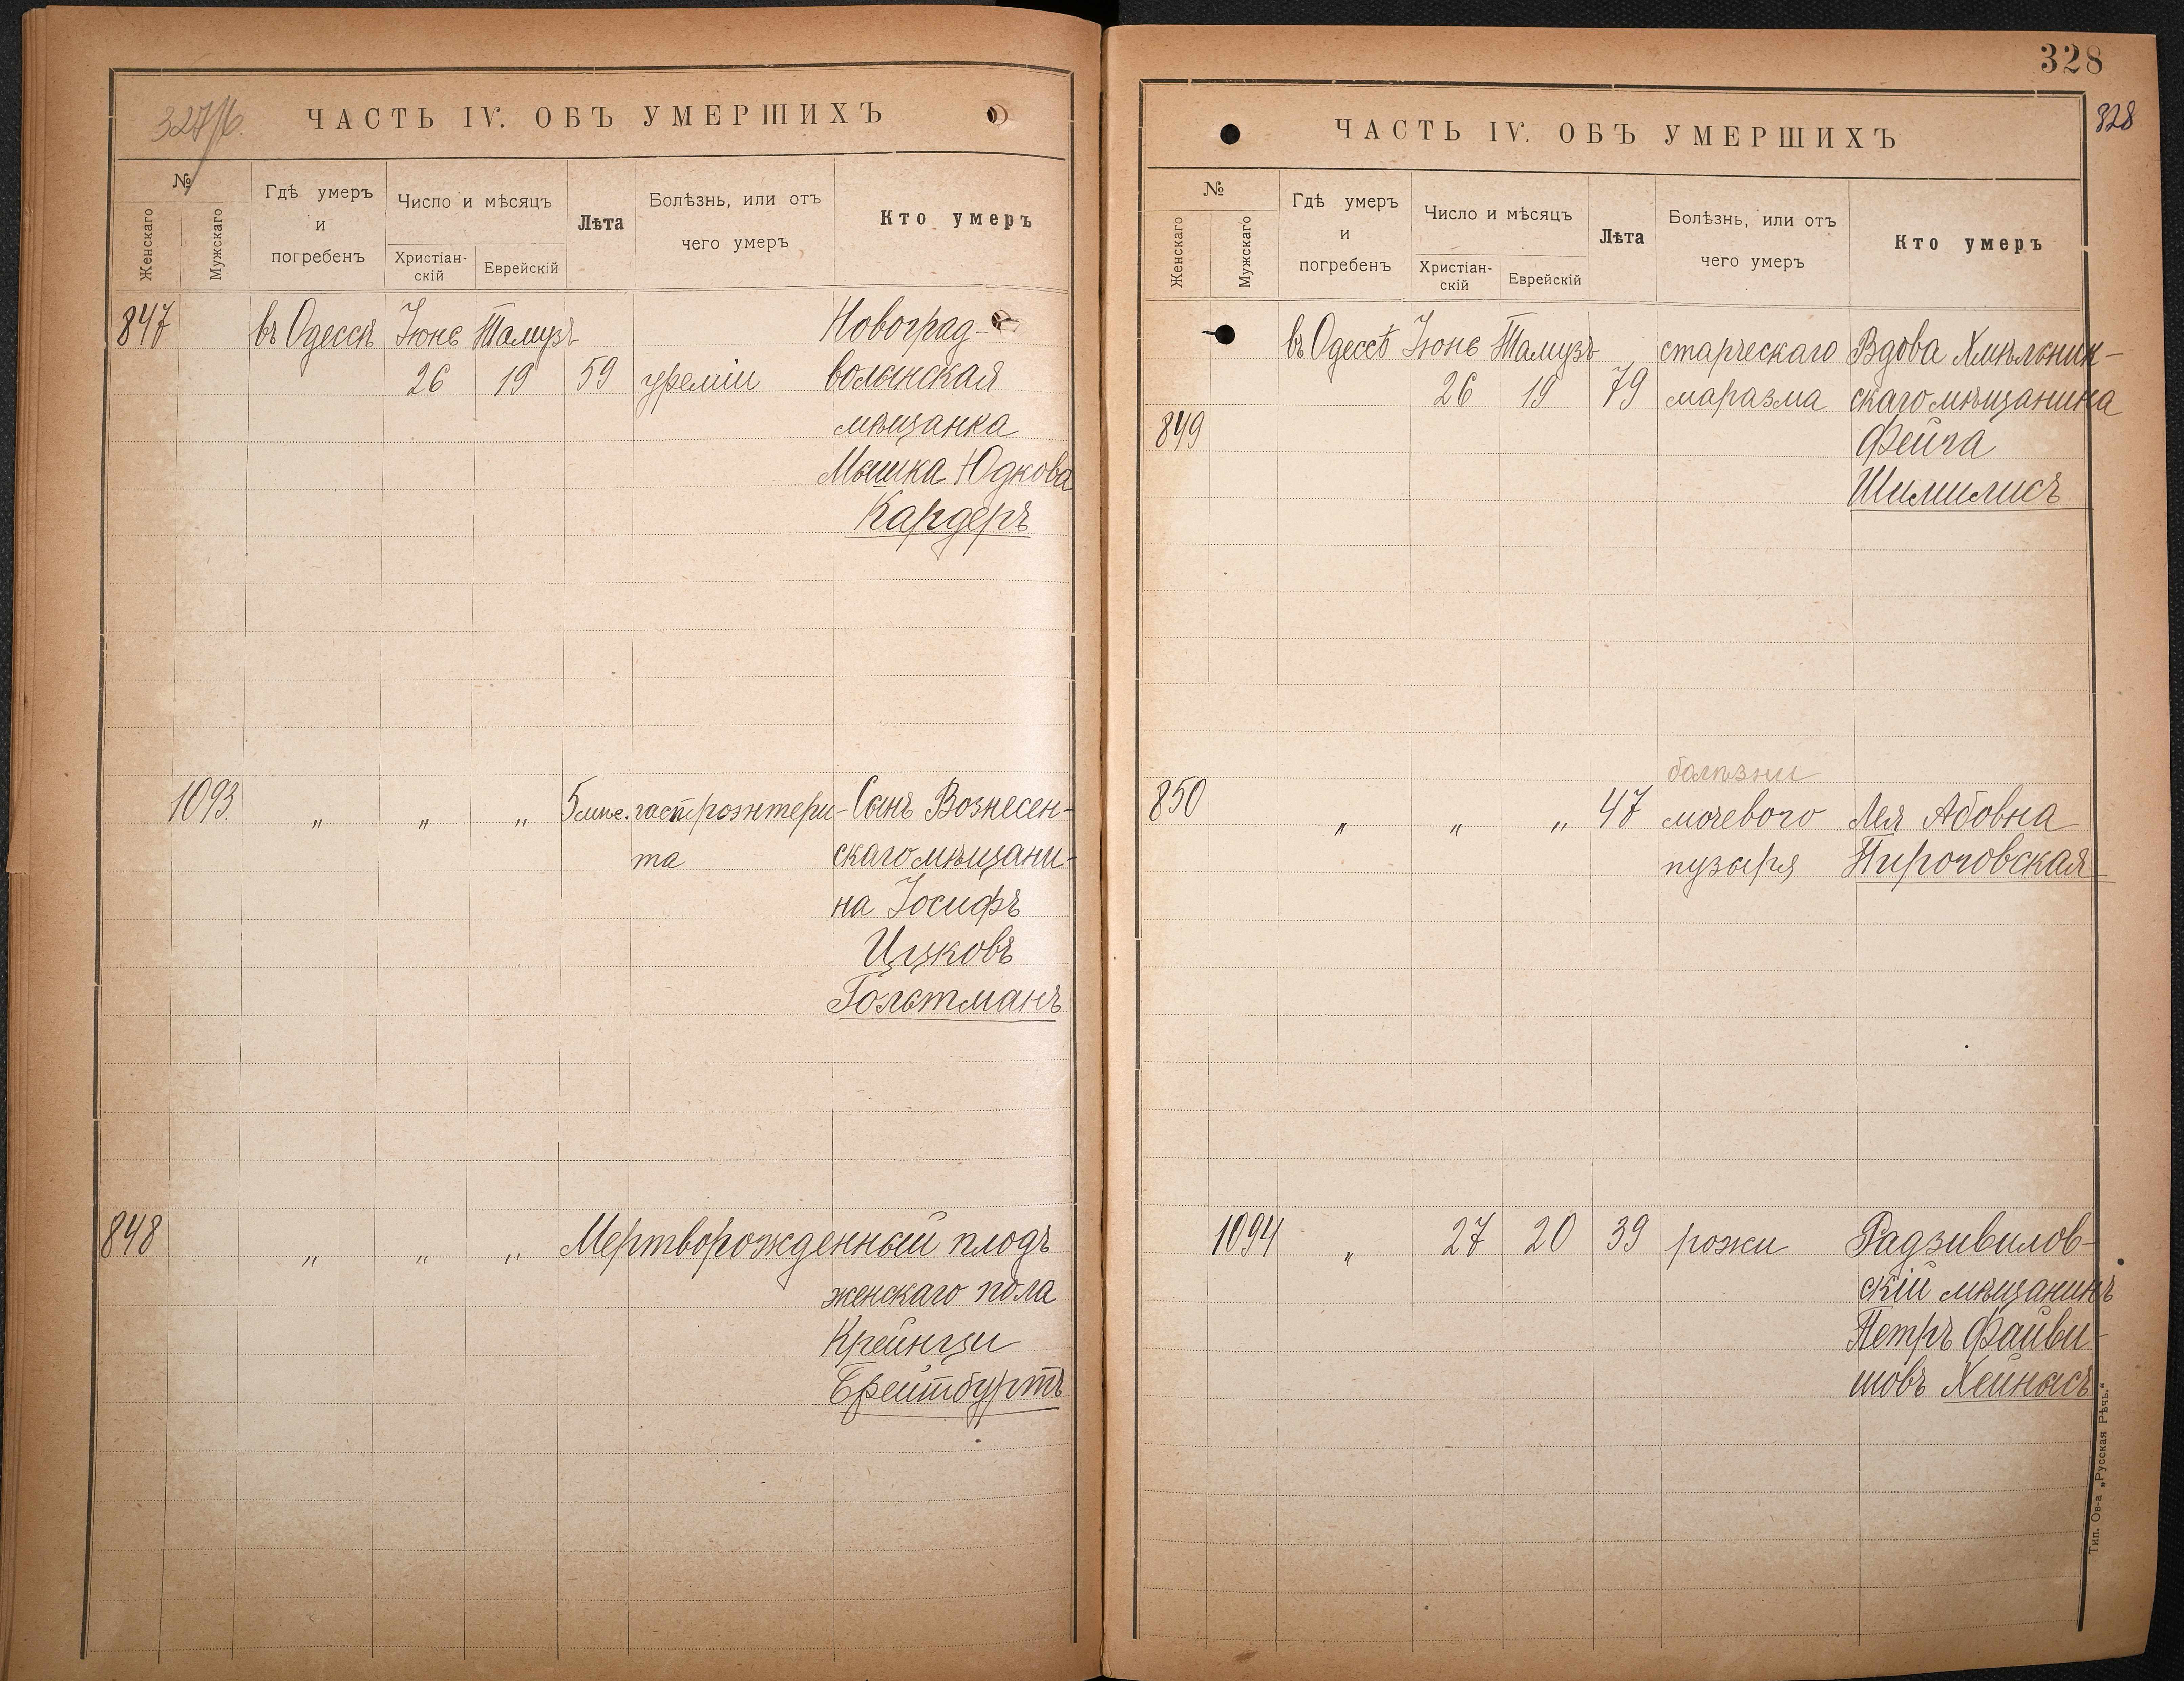 327/б.
ЧАСТЬ IV. ОБЪ УМЕРШИХЪ
№
Женскаго
Мужскаго
Гдѣ умеръ
и
погребенъ
Число и мѣсяцъ
Христіан-
скій
Еврейскій
Лѣта
Болѣзнь, или отъ
чего умеръ
Кто умеръ
847 въ Одессѣ Іюнь Тамузъ Новоград-
26 19 59 уреміи волынская
мѣщанка
Мышка Юдкова
Кардеръ
1093. " " " 5 мѣс. гастроэнтери- Сынъ Вознесен-
та скаго мѣщани-
на Іосифъ
Ицковъ
Гольтманъ
848 " " " Мертворожденный плодъ
женскаго пола
Крейнци
Брейтбуртъ
328
328
ЧАСТЬ IV. ОБЪ УМЕРШИХЪ
№
Женскаго
Мужскаго
Гдѣ умеръ
и
погребенъ
Число и мѣсяцъ
Христіан-
скій
Еврейскій
Лѣта
Болѣзнь, или отъ
чего умеръ
Кто умеръ
въ Одессѣ Іюнь Тамузъ старческаго Вдова Хмѣльник-
26 19 79 маразма скаго мѣщанина
849 Фейга
Шимилисъ
болѣзни
850 " " " 47 мочевого Лея Абовна
пузыря Пироговская
1094 " 27 20 39 рожи Радзивилов-
скій мѣщанинъ
Петръ Файви-
шовъ Хейнысъ
Тип. Ов-а „Русская Рѣчь."